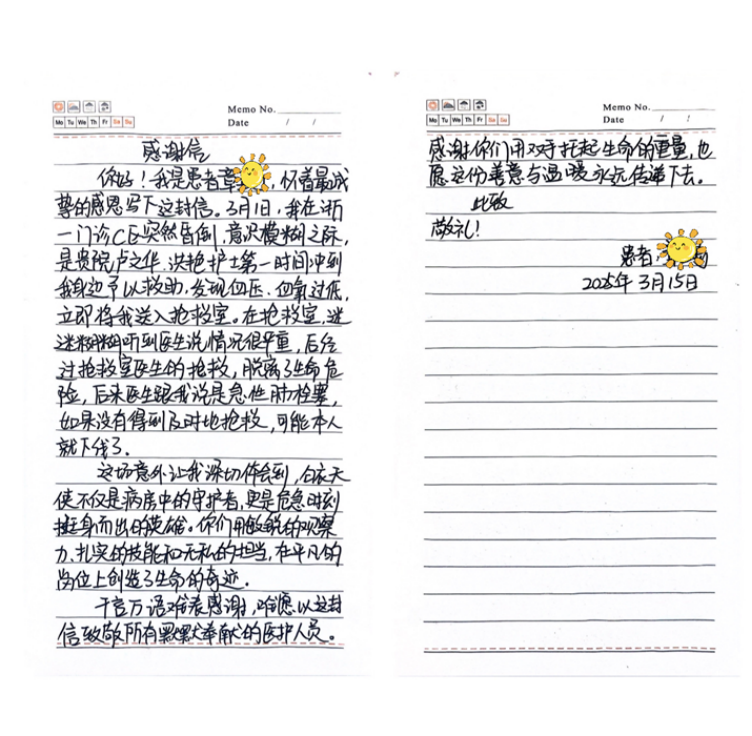 Memo No.
Mo Tu We Th Fr Sa Su
Date / /
感谢信
你好！我是患者章，怀着最诚
挚的感恩写下这封信。3月1日，我在浙
一门诊CE突然昏倒，意识模糊之际，
是贵院卢文华、洪艳护士第一时间冲到
我身边予以救助，发现血压、血氧过低，
立即将我送入抢救室。在抢救室，迷
迷糊糊听到医生说情况很严重，后经
过抢救室医生的抢救，脱离了生命危
险，后来医生跟我说是急性肺栓塞，
如果没有得到及时地抢救，可能本人
就下线了。
这场意外让我深切体会到，白衣天
使不仅是病房中的守护者，更是危急时刻
挺身而出的英雄。你们用敏锐的观察
力、扎实的技能和无私的担当，在平凡的
岗位上创造了生命的奇迹。
千言万语难表感谢，唯愿以这封
信致敬所有默默奉献的医护人员。
Memo No.
Mo Tu We Th Fr Sa Su
Date / /
感谢你们用双手托起生命的重量，也
愿这份善意与温暖永远传递下去。
此致
敬礼！
患者：
2025年3月15日